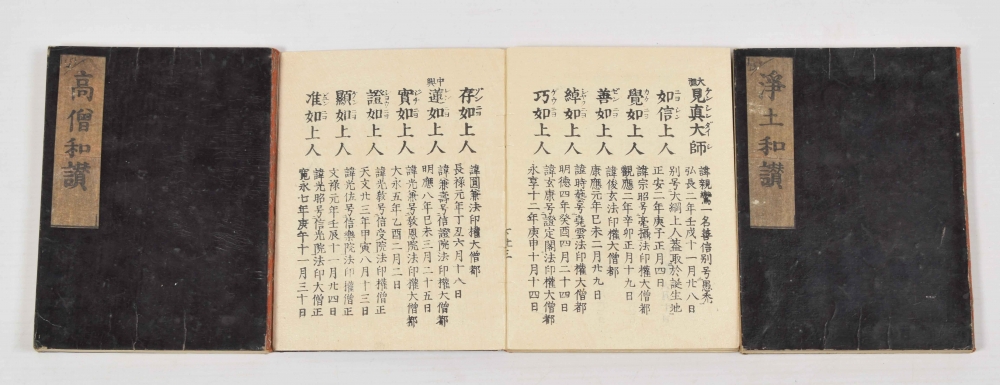 淨土和讃
見真大師
諱親鸞一名善信別号愚禿
弘長二年壬戌十一月廿八日
如信上人
別号大網上人蓋取於誕生地
正安二年庚子正月四日
覺如上人
諱宗昭号毫攝法印權大僧都
觀應二年辛卯正月十九日
善如上人
諱俊玄法印權大僧都
康應元年巳未二月廿九日
綽如上人
諱時藝号堯雲法印權大僧都
明德四年癸酉四月二十四日
巧如上人
諱玄康号證定閣法印權大僧都
永享十二年庚申十月十四日
存如上人
諱圓兼法印權大僧都
長禄元年丁丑六月十八日
中興
蓮如上人
諱兼壽号信證院法印權大僧都
明應八年巳未三月二十五日
實如上人
諱光兼号敎恩院法印權大僧都
大永五年乙酉二月二日
證如上人
諱光敎号信受院法印權僧正
天文廿三年甲寅八月十三日
顯如上人
諱光佐号信樂院法印權僧正
文禄元年壬辰十一月廿四日
准如上人
諱光昭号信光院法印大僧正
寛永七年庚午十一月三十日
高僧和讃